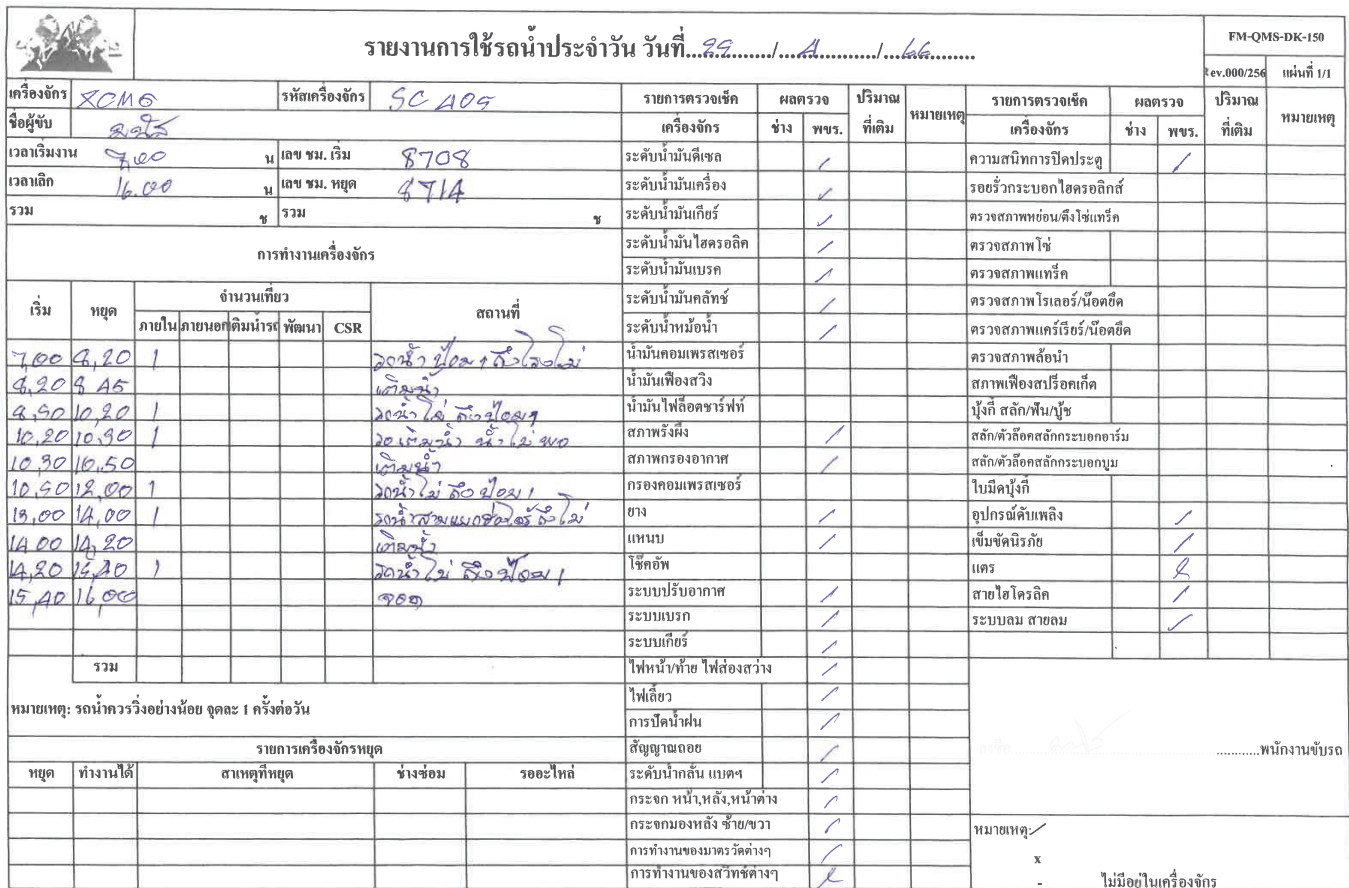 รายงานการใช้รถน้ำประจำวัน วันที่...29......../....4............/....66..........
FM-QMS-DK-150
Rev.000/256 แผ่นที่ 1/1
เครื่องจักร XCMG รหัสเครื่องจักร SC 405
ชื่อผู้ขับ มนัส
เวลาเริ่มงาน 7,00 น เลข ชม. เริ่ม 8708
เวลาเลิก 16.00 น เลข ชม. หยุด 8714
รวม ช รวม ช
การทำงานเครื่องจักร
เริ่ม หยุด จำนวนเที่ยว สถานที่
ภายใน ภายนอก เติมน้ำรถ พัฒนา CSR
7,00 8,20 1 รดน้ำ ป้อม 1 ถึงโรงโม่
8,20 8 45 เติมน้ำ
8,50 10,20 1 รดน้ำ โม่ ถึงป้อม 1
10,20 10,30 1 รอเติมน้ำ น้ำไม่พอ
10,30 10,50 เติมน้ำ
10,50 12,00 1 รดน้ำโม่ ถึงป้อม 1
13,00 14,00 1 รดน้ำสามแยก ถึงโม่
14 00 14,20 เติมน้ำ
14,20 15,40 1 รดน้ำโม่ ถึงป้อม 1
15,40 16,00 จอด
รวม
หมายเหตุ: รถน้ำควรวิ่งอย่างน้อย จุดละ 1 ครั้งต่อวัน
รายการเครื่องจักรหยุด
หยุด ทำงานได้ สาเหตุที่หยุด ช่างซ่อม รออะไหล่
รายการตรวจเช็ค ผลตรวจ ปริมาณ หมายเหตุ
เครื่องจักร ช่าง พขร. ที่เติม
ระดับน้ำมันดีเซล /
ระดับน้ำมันเครื่อง /
ระดับน้ำมันเกียร์ /
ระดับน้ำมันไฮดรอลิค /
ระดับน้ำมันเบรค /
ระดับน้ำมันคลัทช์ /
ระดับน้ำหม้อน้ำ /
น้ำมันคอมเพรสเซอร์
น้ำมันเฟืองสวิง
น้ำมันไฟล็อตชาร์ฟท์
สภาพรังผึ้ง /
สภาพกรองอากาศ /
กรองคอมเพรสเซอร์
ยาง /
แหนบ /
โช๊คอัพ
ระบบปรับอากาศ /
ระบบเบรก /
ระบบเกียร์ /
ไฟหน้า/ท้าย ไฟส่องสว่าง /
ไฟเลี้ยว /
การปัดน้ำฝน /
สัญญาณถอย /
ระดับน้ำกลั่น แบตฯ /
กระจก หน้า,หลัง,หน้าต่าง /
กระจกมองหลัง ซ้าย/ขวา /
การทำงานของมาตรวัดต่างๆ /
การทำงานของสวิทช์ต่างๆ
รายการตรวจเช็ค ผลตรวจ ปริมาณ หมายเหตุ
เครื่องจักร ช่าง พขร. ที่เติม
ความสนิทการปิดประตู /
รอยรั่วกระบอกไฮดรอลิกส์
ตรวจสภาพหย่อน/ตึงโซ่แทร็ค
ตรวจสภาพโซ่
ตรวจสภาพแทร็ค
ตรวจสภาพโรเลอร์/น๊อตยึด
ตรวจสภาพแคร์เรียร์/น๊อตยึด
ตรวจสภาพล้อนำ
สภาพเฟืองสปร็อคเก็ต
บุ้งกี๋ สลัก/ฟัน/บู้ช
สลัก/ตัวล๊อคสลักกระบอกอาร์ม
สลัก/ตัวล๊อคสลักกระบอกบูม
ใบมีดบุ้งกี๋
อุปกรณ์ดับเพลิง /
เข็มขัดนิรภัย /
แตร
สายไฮโดรลิค /
ระบบลม สายลม /
ลงชื่อ มนัส ............พนักงานขับรถ
หมายเหตุ: /
x
- ไม่มีอยู่ในเครื่องจักร